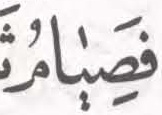 فَصِيَامُ